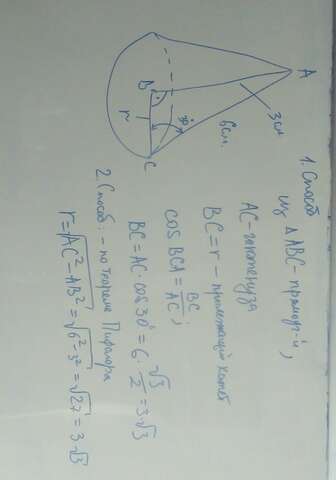 A
B
C
r
30°
3см
6см.
1. Способ
из △ABC - прямоуг-й,
AC - гипотенуза
BC = r - прилежащий катет
cos BCA = BC/AC;
BC = AC · cos 30° = 6 · √3/2 = 3√3
2. Способ: - по теореме Пифагора
r = √AC² - AB² = √6² - 3² = √27 = 3√3